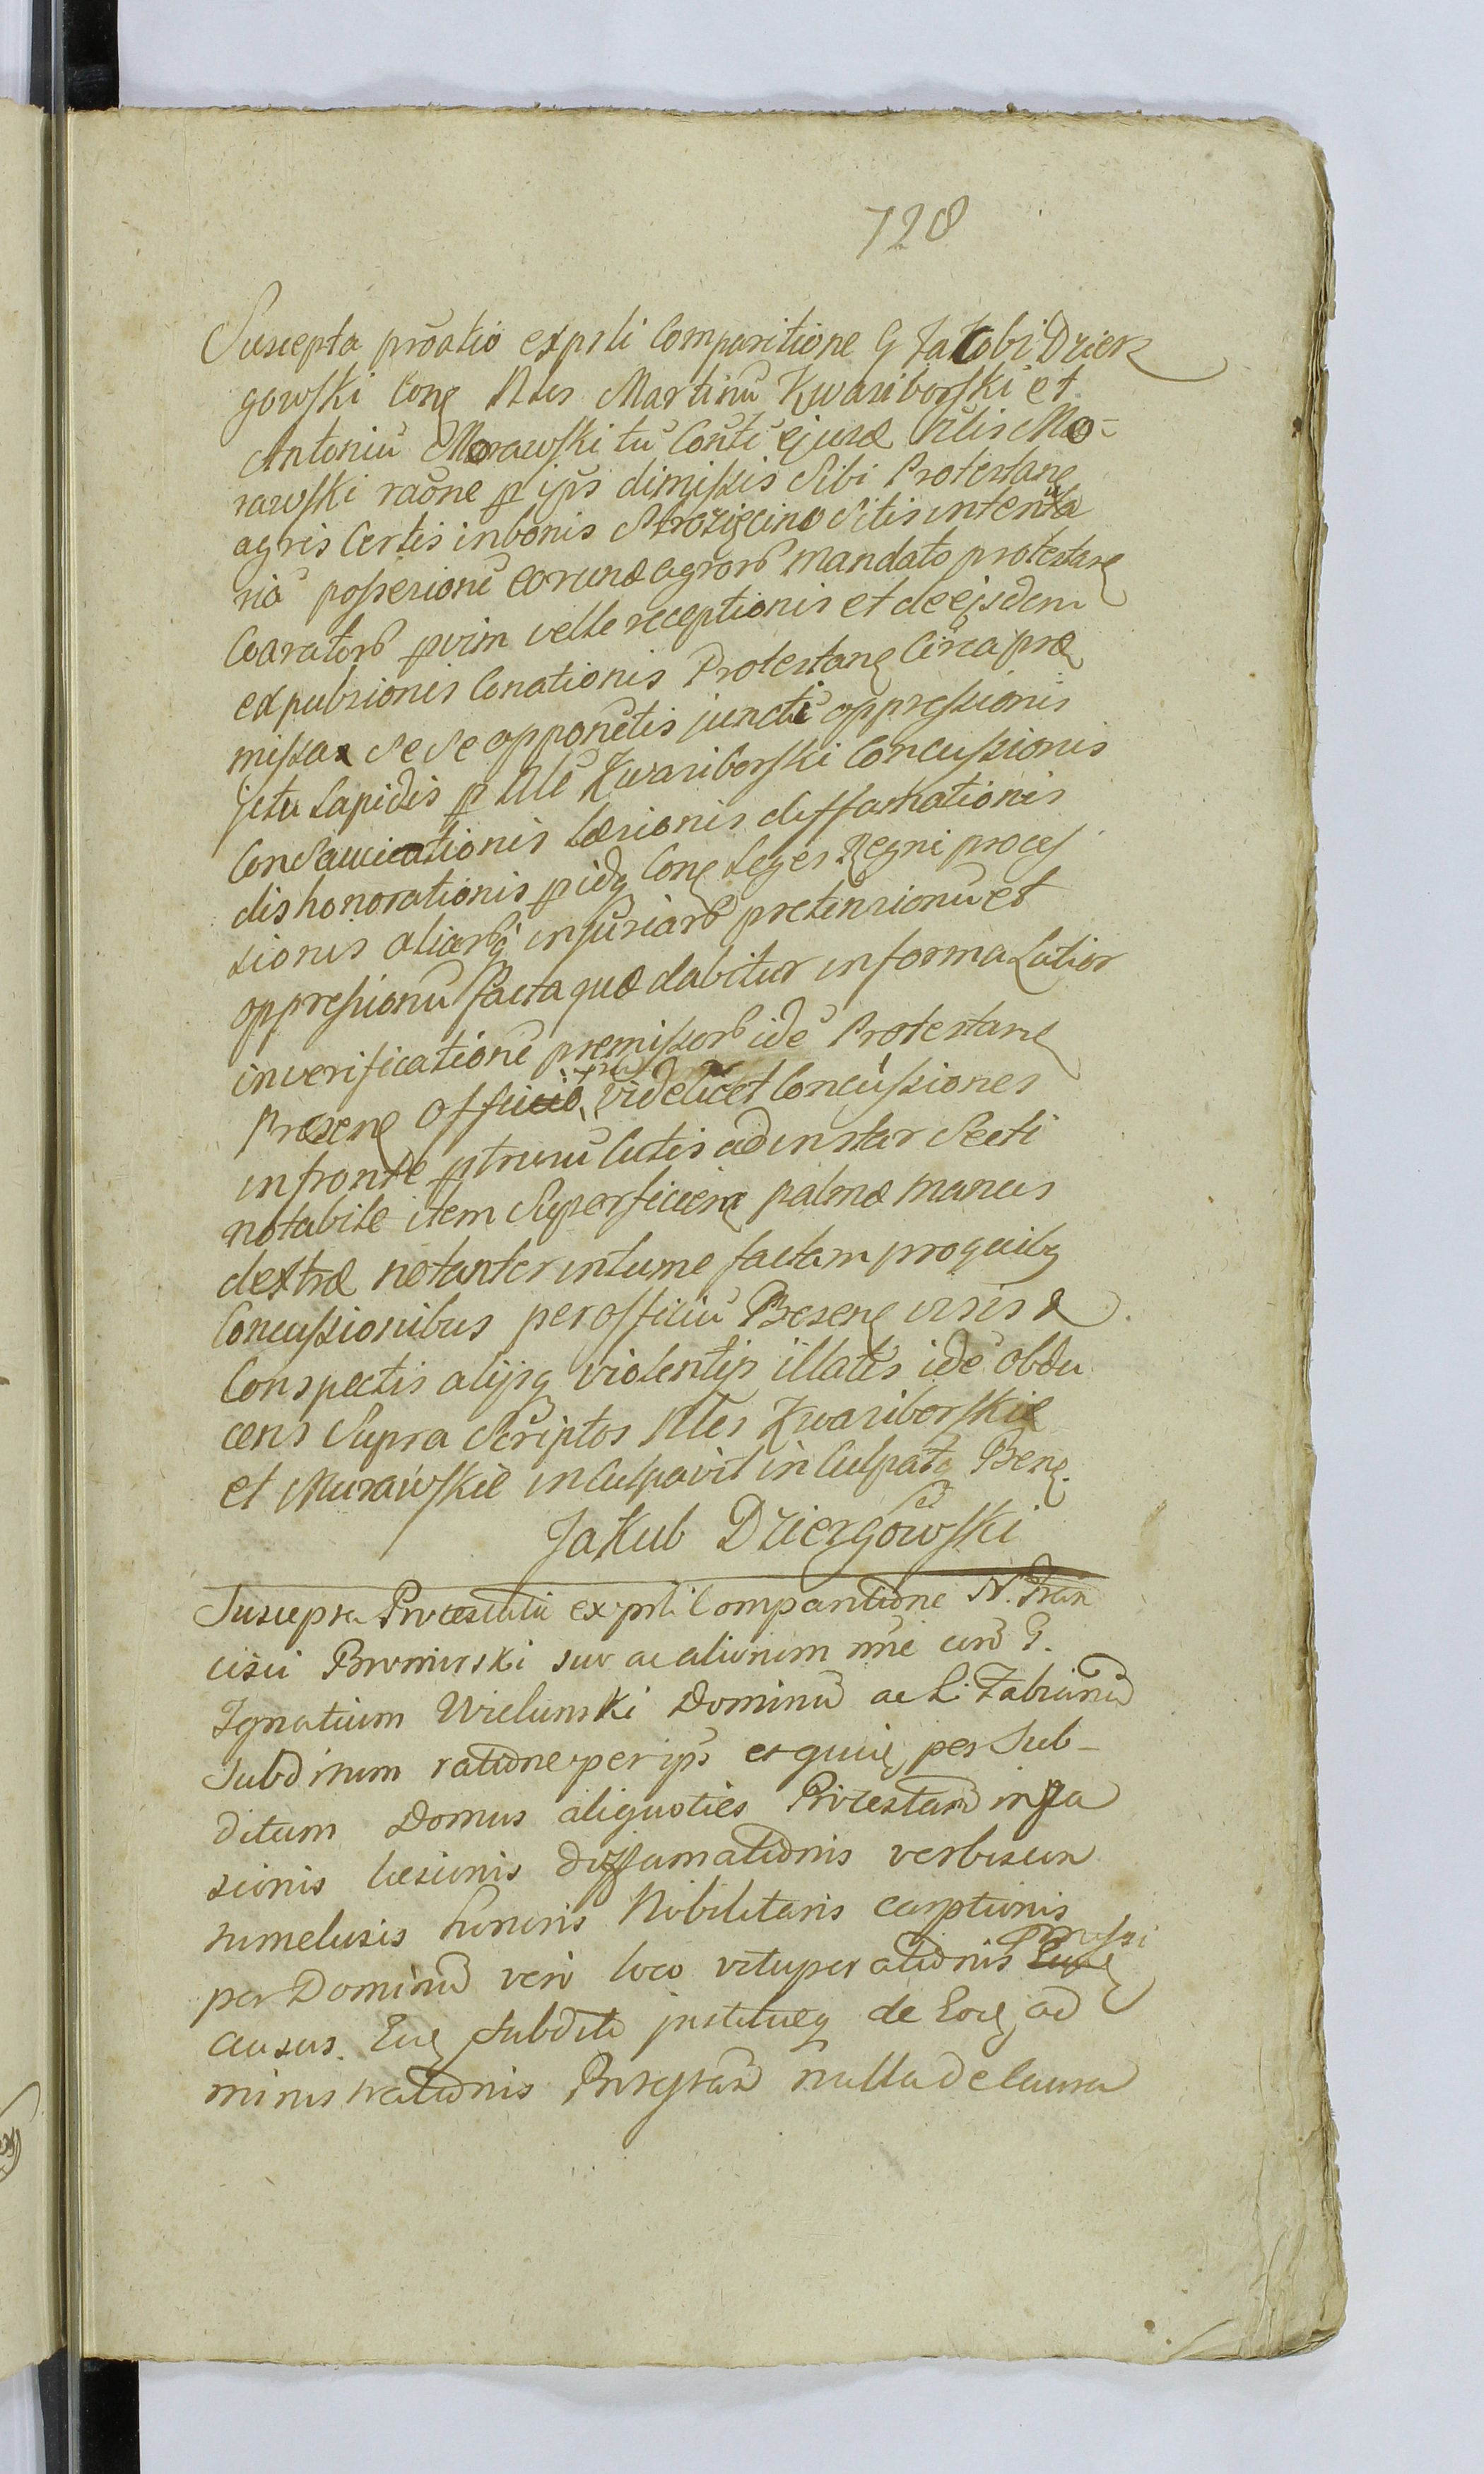 728
Suscepta proatio ex psti Comparitione G Jacobi Dzier
gowski Con Nles Martinū Kwasiborski et
Antoniū Morawski tū Contē ejusd Nlis Mo=
rawski raōne p ips dimissis Sibi Protestan
agris Certis in bonis Strozięcino Sitis intentua
riā possesionē eorund agror mandato protestan
Coarator p vim velle receptionis et de eisdem
expulsionis Conationis Protestan Circa præ
missa Se Se opponētis junctē oppressionis
jctu Lapidis p Nlē Kwasiborski Concussionis
Consauciationis læsionis diffamationis
dishonorationis p idq Con Leges Regni proces
sionis aliarq injuriar pretensionū et
oppressionū facta quæ dabitur in forma Latior
in verificationē premissor idē Protestan
Presen officio videlicet Concussiones
in fronte p trusū Cutis ad instar Secti
notabile item Superficiem palmæ manus
dextræ notanter intume factam pro quibq
Concussionibus per officiū Presen visis &
Conspectis alijsq violentijs illatis idē obdu
cens Supra Scriptos Nles Kwasiborskie
et Murawskie in Culpavit in Culpat Psen
Jakub Dziergowski
Suscepta Protestatio ex psti Comparitione N. Fran
cisci Bromirski suo ac aliorum nōie con G.
Ignatium Wielunski Dominū ac L. Fabianū
Subditum ratione per ips et quiē per Sub-
ditum Domus aliquoties Protestan inva
sionis læsionis diffamationis verbis con
tumelusis honoris Nobilitaris carptionis
per Dominū vero loco vituperationis
ausus. Subditi justitueq de Eod ad
ministrationis Protestan nulla de causa